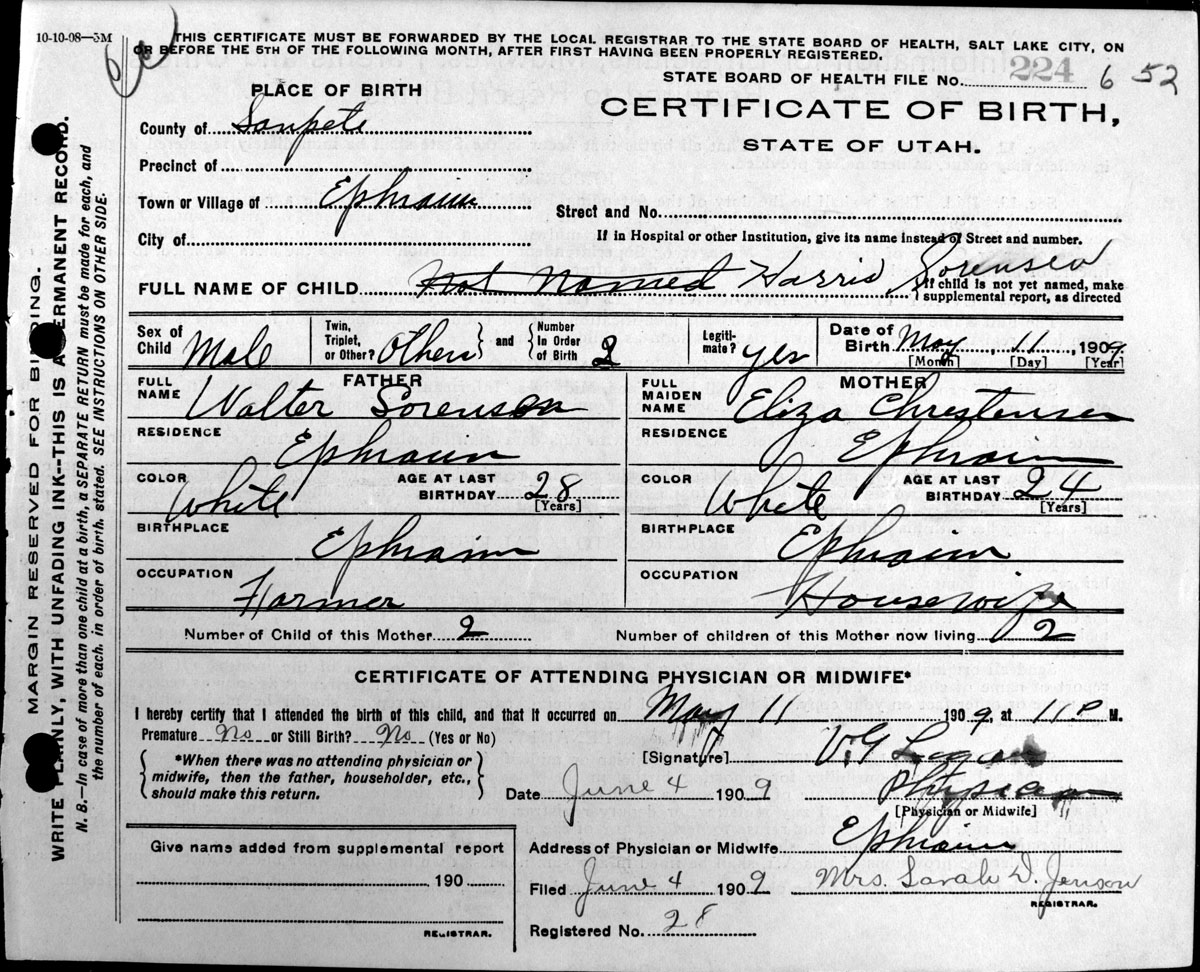 10-10-08—5M
THIS CERTIFICATE MUST BE FORWARDED BY THE LOCAL REGISTRAR TO THE STATE BOARD OF HEALTH, SALT LAKE CITY, ON
OR BEFORE THE 5TH OF THE FOLLOWING MONTH, AFTER FIRST HAVING BEEN PROPERLY REGISTERED.
STATE BOARD OF HEALTH FILE No. 224 6 52
PLACE OF BIRTH
CERTIFICATE OF BIRTH,
STATE OF UTAH.
County of Sanpete
Precinct of
Town or Village of Ephraim
Street and No.
City of
If in Hospital or other Institution, give its name instead of Street and number.
FULL NAME OF CHILD Not Named Harris Sorensen
If child is not yet named, make
supplemental report, as directed
Sex of Child Male
Twin, Triplet, or Other? Other and Number In Order of Birth 2
Legiti-mate? yes
Date of Birth May, 11, 1909
[Month] [Day] [Year]
FATHER
FULL NAME Walter Sorensen
RESIDENCE Ephraim
COLOR White
AGE AT LAST BIRTHDAY 28
[Years]
BIRTHPLACE Ephraim
OCCUPATION Farmer
MOTHER
FULL MAIDEN NAME Eliza Chrestensen
RESIDENCE Ephraim
COLOR White
AGE AT LAST BIRTHDAY 24
[Years]
BIRTHPLACE Ephraim
OCCUPATION Housewife
Number of Child of this Mother 2
Number of children of this Mother now living 2
CERTIFICATE OF ATTENDING PHYSICIAN OR MIDWIFE*
I hereby certify that I attended the birth of this child, and that it occurred on May 11 1909, at 11 P M.
Premature No or Still Birth? No (Yes or No)
*When there was no attending physician or
midwife, then the father, householder, etc.,
should make this return.
[Signature] V.G
Date June 4 1909 Physician
[Physician or Midwife]
Give name added from supplemental report
190
REGISTRAR.
Address of Physician or Midwife Ephraim
Filed June 4 1909 Mrs. Sarah D. Jenson
REGISTRAR.
Registered No. 28
MARGIN RESERVED FOR BINDING.
WRITE PLAINLY, WITH UNFADING INK--THIS IS A PERMANENT RECORD.
N. B.—In case of more than one child at a birth, a SEPARATE RETURN must be made for each, and
the number of each, in order of birth, stated. SEE INSTRUCTIONS ON OTHER SIDE.